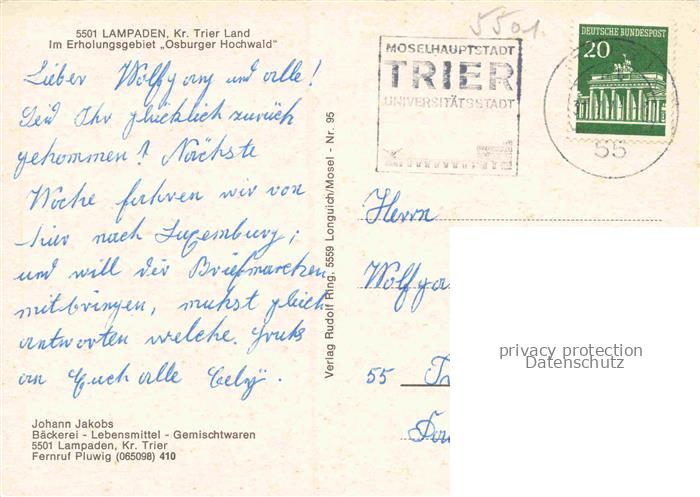 5501 LAMPADEN, Kr. Trier Land
Im Erholungsgebiet „Osburger Hochwald"
Lieber Wolfgang und alle!
Seid Ihr glücklich zurück
gekommen? Nächste
Woche fahren wir von
hier nach Luxemburg;
und will dir Briefmarcken
mitbringen, muhst gleich
antworten welche. Gruhs
an Euch alle
Johann Jakobs
Bäckerei - Lebensmittel - Gemischtwaren
5501 Lampaden, Kr. Trier
Fernruf Pluwig (065098) 410
Verlag Rudolf Ring, 5559 Longuich/Mosel - Nr. 95
5501
MOSELHAUPTSTADT
TRIER
UNIVERSITÄTSSTADT
DEUTSCHE BUNDESPOST
20
55
Herrn
Wolfga
55
privacy protection
Datenschutz